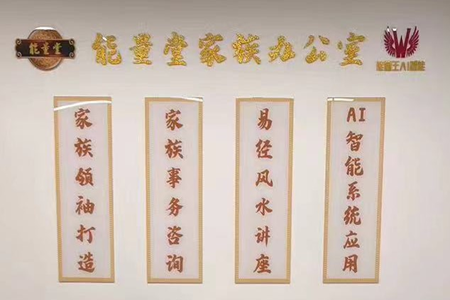 能量堂
能量堂家族办公室
家族领袖打造
家族事务咨询
易经风水讲座
AI智能系统应用